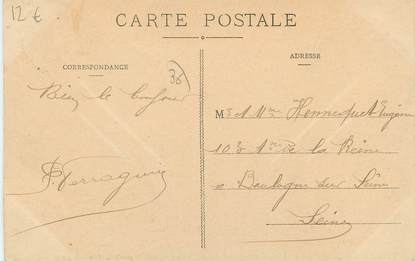 12 €
CARTE POSTALE
CORRESPONDANCE
38
Bien le bonjour
ADRESSE
M r et Mme Hennequet Eugène
103 de la Reine
Boulogne sur Seine
Seine